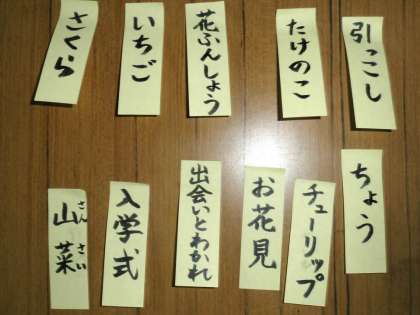 さくら
いちご
花ふんしょう
たけのこ
引っこし
山菜
さんさい
入学式
出会いとわかれ
お花見
チューリップ
ちょう